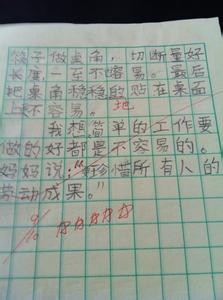 筷子做桌角,切断量好
长度,一至不容易。最后
把桌角稳稳的贴在桌面
上不容易。地
我想简单的工作要
做的好都是不容易的。
妈妈说:“珍惜所有人的
劳动成果。”
9/10